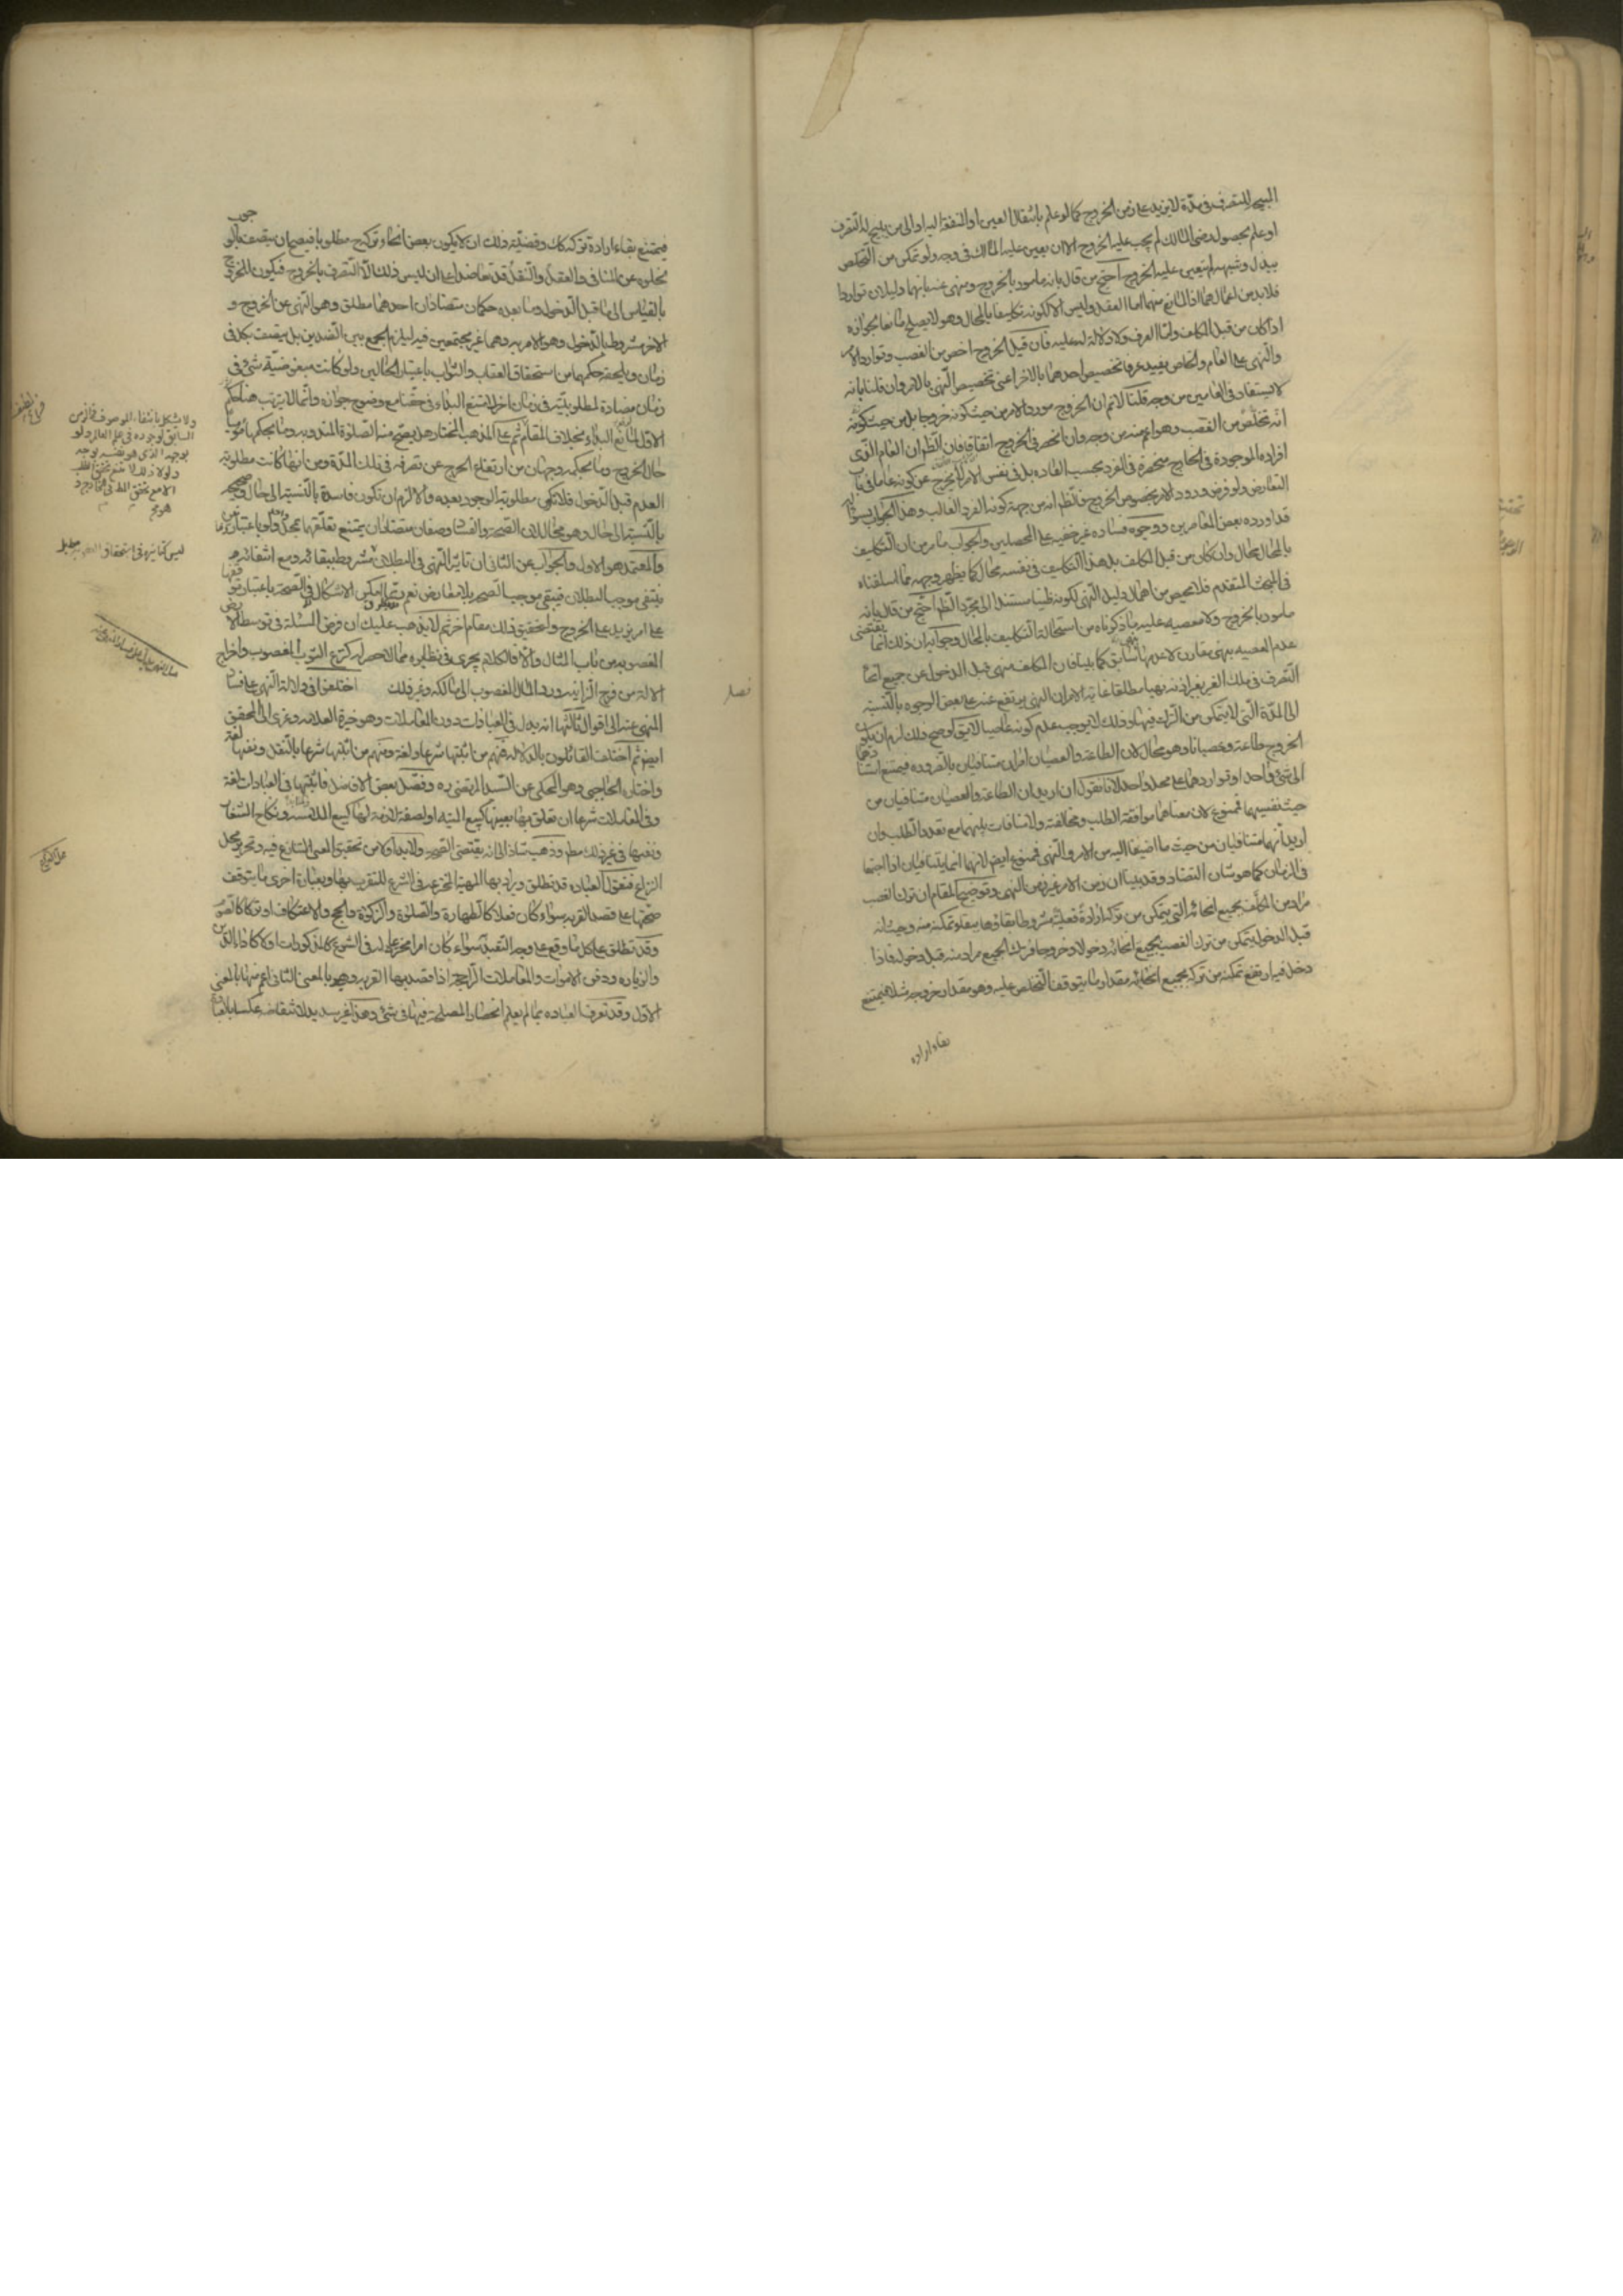 المبيح للتصرف في مدة لا يزيد على زمن الخروج كما لو علم بانتقال العين او المنفعة اليه او الى من يبيح له التصرف
او علم بحصول رضى المالك لم يجب عليه الخروج الا ان يعين عليه المالك في وجه ولو تمكن من التخلص
ببدل وشبهه لم يتعين عليه الخروج احتج من قال بانه مامور بالخروج ومنهى عنه بانهما دليلان تواردا
فلا بد من اعمالهما اذ المانع منهما اما العقل وليس الا لكونه تكليفا بالمحال وهو لا يصلح مانعا لجوازه
اذا كان من قبل المكلف واما العرف ولا دلالة له عليه فان قيل الخروج اخص من الغصب وتوارد الامر
والنهى على العام والخاص يفيد عرفا تخصيص احدهما بالاخر اعنى تخصيص النهى بالامر وان قلنا بانه
لا يستفاد في العامين من وجه قلنا لا نم ان الخروج مورد الامر من حيث كونه خروجا بل من حيث كونه
انه تخلص من الغصب وهو اعم منه من وجه وان انحصر في الخروج اتفاقا فان الظم ان العام الذى
افراده الموجودة في الخارج منحصرة في الفرد بحسب العادة بل في نفس الامر لا يخرج عن كونه عاما في باب
التعارض ولو فرض ورود الامر بخصوص الخروج فالظم انه من جهة كونه الفرد الغالب وهذا الجواب
قد اورده بعض المعاصرين ووجوه فساده غير خفية على المحصلين والجواب ما مر من ان التكليف
بالمحال محال وان كان من قبل المكلف بل هذا التكليف في نفسه محال كما يظهر وجهه مما اسلفناه
في المبحث المتقدم فلا محيص من اهمال دليل النهى لكونه ظنيا مستندا الى مجرد الظم احتج من قال بانه
مامور بالخروج ولا معصية عليه بما ذكرناه من استحالة التكليف بالمحال وجوابه ان ذلك انما يقتضى
عدم المعصيه بنهى مقارن لا عدمها بنهى سابق كما بينا فان المكلف منهى قبل الدخول عن جميع انحاء
التصرف في ملك الغير بغير اذنه نهيا مطلقا غاية الامر ان النهى يرتفع عنه على بعض الوجوه بالنسبة
الى المدة التى لا يتمكن من الترك فيها وذلك لا يوجب عدم كونه عاصيا لا يق لو صح ذلك لزم ان يكون
الخروج طاعة وعصيانا وهو محال لان الطاعة والعصيان امران متنافيان بالضروره فيمتنع استنادهما
الى شئ واحد او تواردهما على محل واحد لانا نقول ان اريد ان الطاعة والعصيان متنافيان من
حيث نفسيهما فممنوع لان معناهما موافقة الطلب ومخالفته ولا منافات بينهما مع تعدد الطلب وان
اريد انهما متنافيان من حيث ما اضيفا اليه من الامر والنهى فممنوع ايضم لانهما انما يتنافيان اذا اجتمعا
في الزمان كما هو شان التضاد وقد بينا ان زمن الامر غير زمن النهى وتوضيح المقام ان ترك الغصب
مراد من المكلف بجميع انحائه التى يتمكن من تركه ارادة فعلية مشروطا بقاؤها ببقاء تمكنه منه وحيث انه
قبل الدخول يتمكن من ترك الغصب بجميع انحائه دخولا وخروجا فترك الجميع مراد منه قبل دخوله فاذا
دخل فيه ارتفع تمكنه من تركه بجميع انحائه مقدار ما يتوقف التخلص عليه وهو مقدار خروجه مثلا فيمتنع
بقاء ارادة
فيمتنع بقاء ارادة تركه كك وقضية ذلك ان لا يكون بعض انحاء تركه مطلوبا فيصح ان يتصف بالوجوب
لخلوه عن المنافى والعقل والنقل قد تعاضدا على ان ليس ذلك الا التصرف بالخروج فيكون للخروج
بالقياس الى ما قبل الدخول وما بعده حكمان متضادان احدهما مطلق وهو النهى عن الخروج و
الاخر مشروط بالدخول وهو الامر به وهما غير مجتمعين فيه ليلزم الجمع بين الضدين بل يتصف بكل في
زمان ويلحقه حكمهما من استحقاق العقاب والثواب باعتبار الحالين ولو كانت مبغوضية شئ في
زمان مضادة لمطلوبيته في زمان اخر لامتنع البداء في حقنا مع وضوح جوازه وانما لا يترتب هنا حكم
الاول لرفع البداء بخلاف المقام ثم على المذهب المختار هل يصح منه الصلوة المندوبه وما بحكمها مؤميا
حال الخروج وما بحكمه وجهان من ارتفاع الحرج عن تصرفه في تلك المدة ومن انها كانت مطلوبة
العدم قبل الدخول فلا تكون مطلوبة الوجود بعده والا لزم ان تكون فاسدة بالنسبة الى حال وصحيحة
بالنسبة الى حال وهو محال لان الصحة والفساد وصفان متضادان يمتنع تعلقهما بمحل واحد ولو باعتبار زمانين
والمعتمد هو الاول والجواب عن الثانى ان تاثير النهى في البطلان مشروط ببقائه ومع انتفائه
ينتفى موجب البطلان فيبقى موجب الصحه بلا معارض نعم ربما يمكن الاشكال في الصحه باعتبار توقفها
على امر يزيد على الخروج ولتحقيق ذلك مقام اخر ثم لا يذهب عليك ان فرض المسئلة في توسط الارض
المغصوبه من باب المثال والا فالكلام يجرى في نظايره مما لا حصر له كنزع الثوب المغصوب واخراج
الالة من فرج الزانيه ورد المال المغصوب الى مالكه وغير ذلك
فصل
اختلفوا في دلالة النهى على فساد
المنهى عنه الى اقوال ثالثها انه يدل في العبادات دون المعاملات وهو خيرة العلامه وعزى الى المحقق
ايضم ثم اختلف القائلون بالدلاله فمنهم من اثبتها شرعا ولغة ومنهم من اثبتها شرعا بالنقل ونفيها لغة
واختاره الحاجبى وهو المحكى عن السيد المرتضى ره وفصل بعض الافاضل فاثبتها في العبادات لغة
وفى المعاملات شرعا ان تعلق بها بعينها كبيع الميته او لصفة لازمة لها كبيع الملامسه ونكاح الشغار
ونفيها في غير ذلك مطم وذهب شاذ الى انه يقتضى الصحة ولا بد اولا من تحقيق المعنى المتنازع فيه وتحرير محل
النزاع فنقول العباده قد تطلق ويراد بها المهية المخترعه في الشرع للتقرب بها وبعبارة اخرى ما يتوقف
صحتها على قصد القربه سواء كان فعلا كالطهارة والصلوة والزكوة والحج والاعتكاف او تركا كالصوم
وقد تطلق على كل ما وقع على وجه التعبد سواء كان امرا مخترعا له في الشرع كالمذكورات او لا كاداء الدين
والزياره ودفن الاموات والمعاملات الراجحه اذا قصد بها القربه وهو بالمعنى الثانى اعم منها بالمعنى
الاول وقد تعرف العباده بما لم يعلم انحصار المصلحة فيها في شئ وهذا غير سديد لانتقاضه عكسا
ولا يشكل بانتفاء الموصوف في الزمن
السابق لوجوده في علم العالم ولو
بوجهه الذى هو نفسه بوجه
ولولا ذلك لامتنع تحقق الطلب